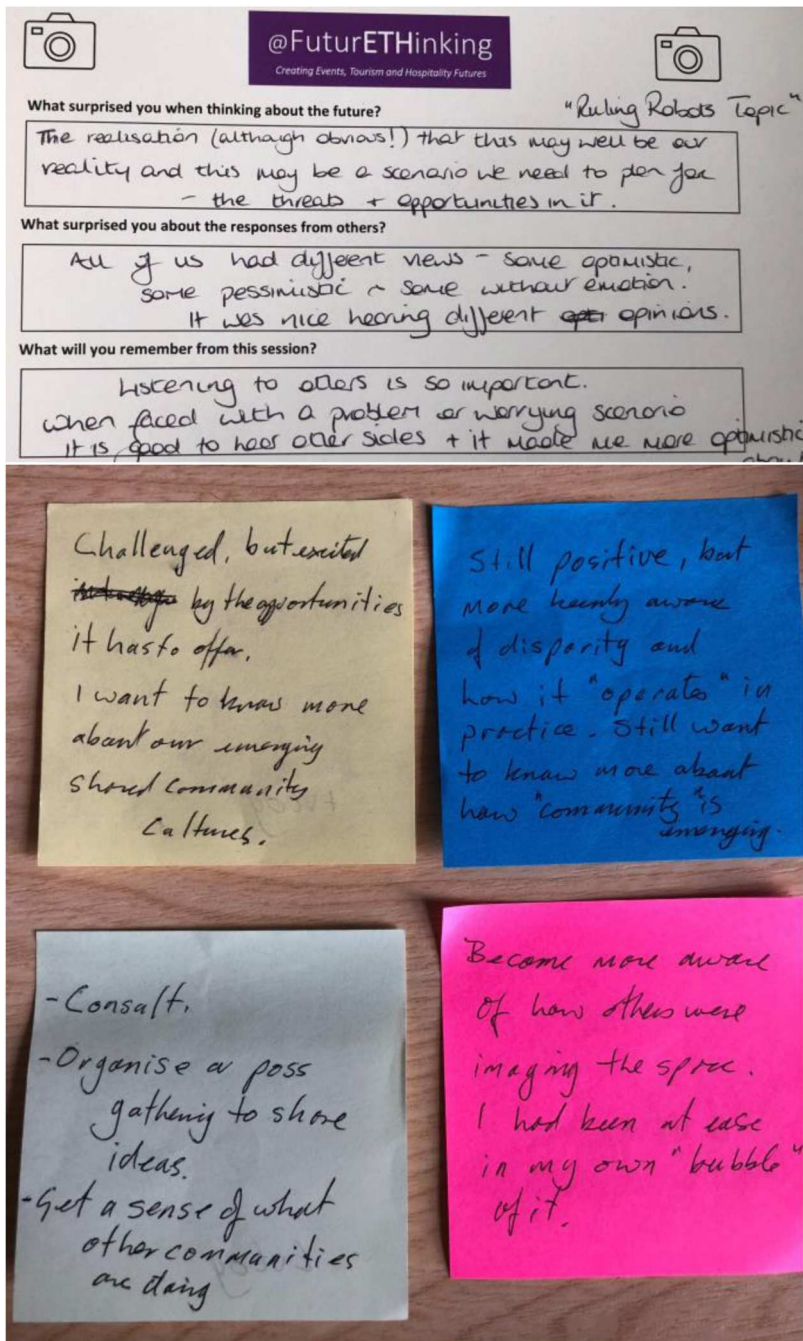 @FuturETHinking
Creating Events, Tourism and Hospitality Futures
What surprised you when thinking about the future?
"Ruling Robots Topic"
The realisation (although obvious!) that this may well be our
reality and this may be a scenario we need to plan for
– the threats + opportunities in it.
What surprised you about the responses from others?
All of us had different views – some optimistic,
some pessimistic ~ some without emotion.
It was nice hearing different opinions.
What will you remember from this session?
Listening to others is so important.
When faced with a problem or worrying scenario
it is good to hear other sides + it made me more optimistic
Challenged, but excited
by the opportunities
it has to offer.
I want to know more
about our emerging
shared community
cultures.
Still positive, but
more keenly aware
of disparity and
how it "operates" in
practice. Still want
to know more about
how "community" is
emerging.
- Consult.
- Organise a poss
gathering to share
ideas.
- Get a sense of what
other communities
are doing
Become more aware
of how others were
imaging the space.
I had been at ease
in my own "bubble"
of it.